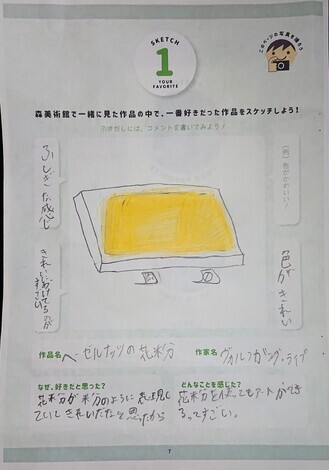 このページの写真を撮ろう
SKETCH
1
YOUR
FAVORITE
森美術館で一緒に見た作品の中で、一番好きだった作品をスケッチしよう！
ふきだしには、コメントを書いてみよう！
ふしぎな感じ
(例) 色がかわいい！
色がきれい
作品名
ヘーゼルナッツの花粉
作家名
ヴォルフガング・ライプ
なぜ、好きだと思った？
花粉が
きれいだなと思ったから
どんなことを感じた？
花粉を使ってもアートができ
るってすごい。
7